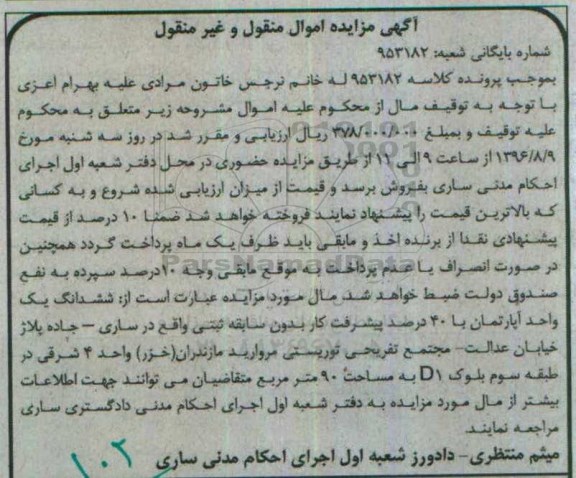 آگهی مزایده اموال منقول و غیر منقول
شماره بایگانی شعبه: ۹۵۳۱۸۲
بموجب پرونده کلاسه ۹۵۳۱۸۲ له خانم نرجس خاتون مرادی علیه بهرام اعزی
با توجه به توقیف مال از محکوم علیه اموال مشروحه زیر متعلق به محکوم
علیه توقیف و بمبلغ ۳۷۸/۰۰۰/۰۰۰ ریال ارزیابی و مقرر شد در روز سه شنبه مورخ
۱۳۹۶/۸/۹ از ساعت ۹ الی ۱۲ از طریق مزایده حضوری در محل دفتر شعبه اول اجرای
احکام مدنی ساری بفروش برسد و قیمت از میزان ارزیابی شده شروع و به کسانی
که بالاترین قیمت را پیشنهاد نمایند فروخته خواهد شد ضمنا ۱۰ درصد از قیمت
پیشنهادی نقدا از برنده اخذ و مابقی باید ظرف یک ماه پرداخت گردد همچنین
در صورت انصراف یا عدم پرداخت به موقع مابقی وجه ۱۰درصد سپرده به نفع
صندوق دولت ضبط خواهد شد. مال مورد مزایده عبارت است از: ششدانگ یک
واحد آپارتمان با ۴۰ درصد پیشرفت کار بدون سابقه ثبتی واقع در ساری – جاده پلاژ
خیابان عدالت- مجتمع تفریحی توریستی مروارید مازندران(خزر) واحد ۴ شرقی در
طبقه سوم بلوک D۱ به مساحت ۹۰ متر مربع متقاضیان می توانند جهت اطلاعات
بیشتر از مال مورد مزایده به دفتر شعبه اول اجرای احکام مدنی دادگستری ساری
مراجعه نمایند.
میثم منتظری- دادورز شعبه اول اجرای احکام مدنی ساری
۱۰۲
ParsNamadData